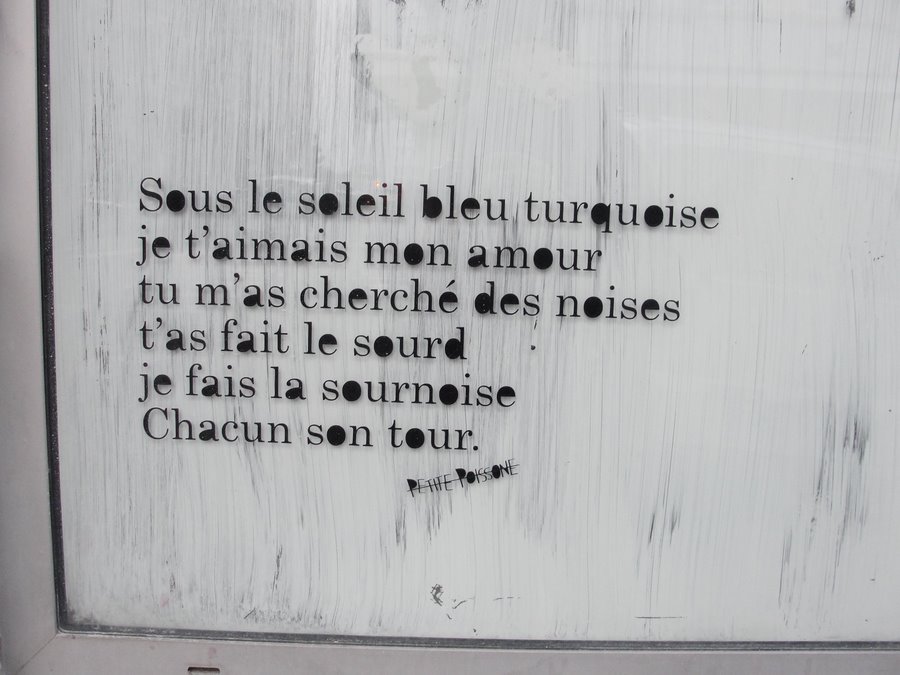 Sous le soleil bleu turquoise
je t'aimais mon amour
tu m'as cherché des noises
t'as fait le sourd
je fais la sournoise
Chacun son tour.
PETITE POISSONE